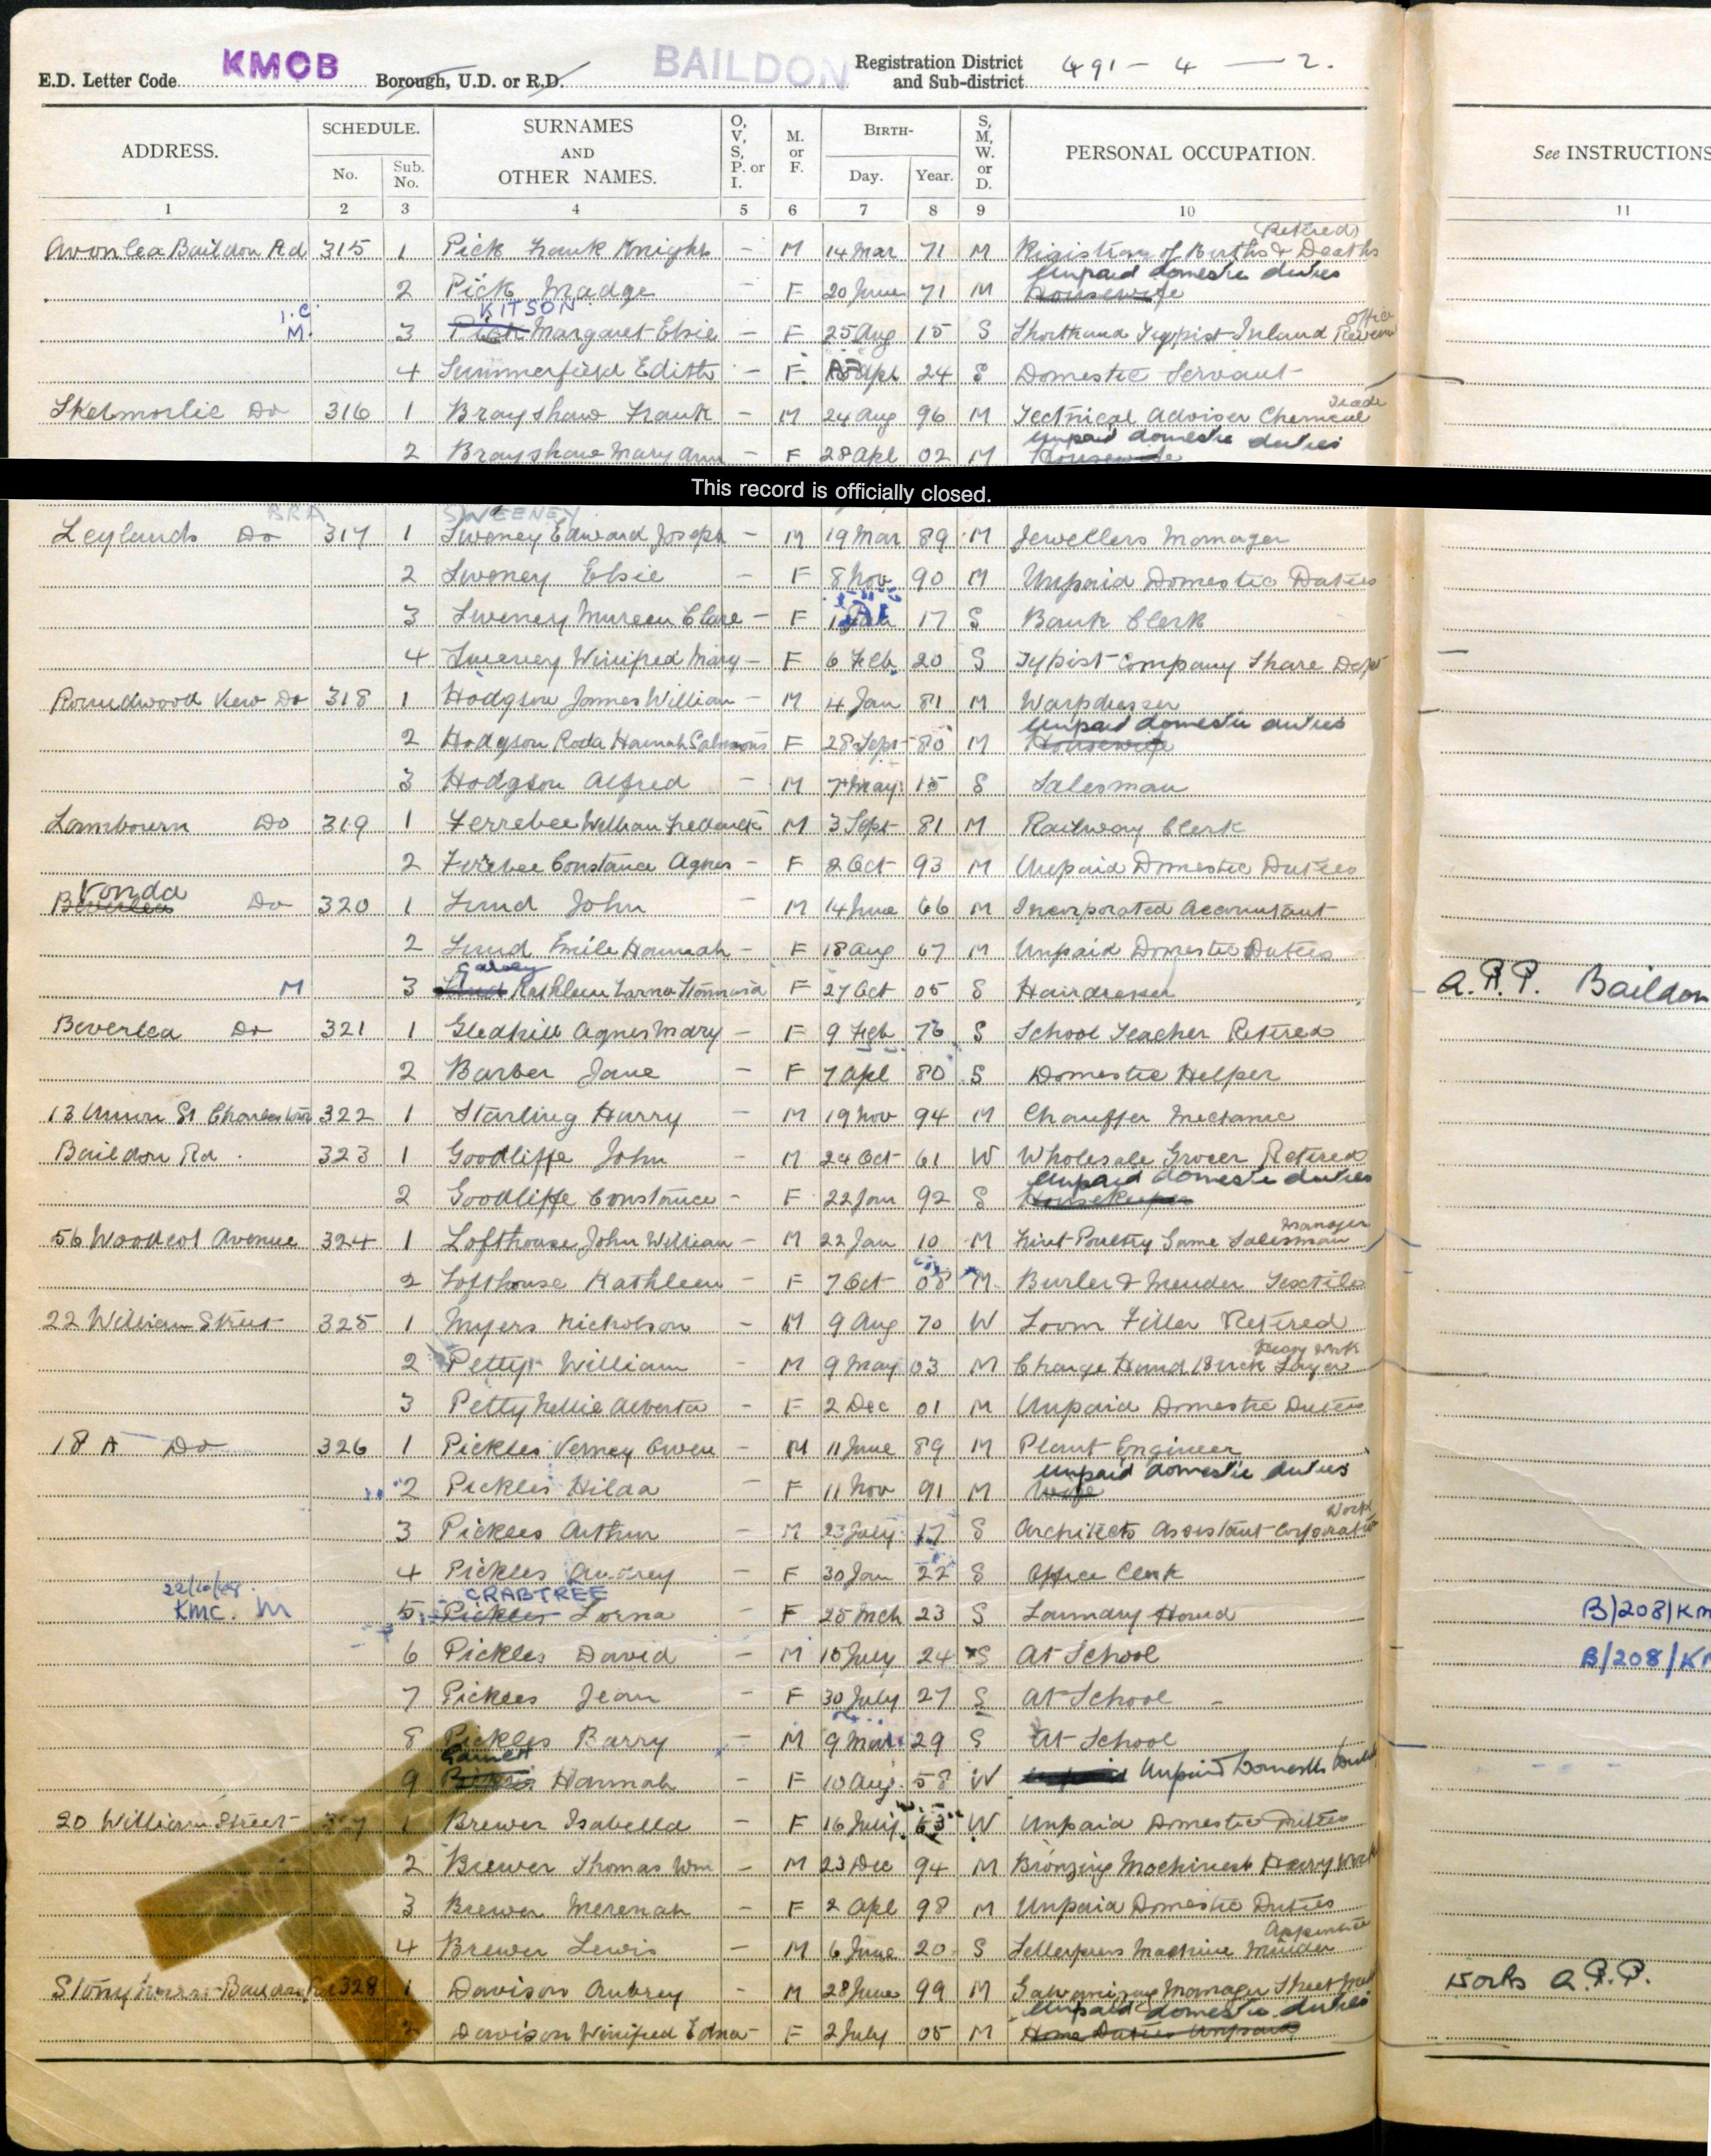 E.D. Letter Code KMOB Borough, U.D. or R.D. BAILDON Registration District and Sub-district 491 - 4 - 2.
ADDRESS. SCHEDULE. No. Sub. No. SURNAMES AND OTHER NAMES. O, V, S, P. or I. M. or F. BIRTH- Day. Year. S, M, W. or D. PERSONAL OCCUPATION. See INSTRUCTIONS
1 2 3 4 5 6 7 8 9 10 11
Retired
Avonlea Baildon Rd 315 1 Pick Frank Knight - M 14 Mar 71 M Registrar of Births & Deaths
Unpaid domestic duties
2 Pick Madge - F 20 June 71 M Housewife
I.C. KITSON Office
M. 3 Pick Margaret Elsie - F 25 Aug 15 S Shorthand Typist Inland Revenue
4 Summerfield Edith - F Apl 24 S Domestic Servant
Trade
Skelmorlie Do 316 1 Brayshaw Frank - M 24 Aug 96 M Technical Adviser Chemical
Unpaid domestic duties
2 Brayshaw Mary Ann - F 28 Apl 02 M Housewife
This record is officially closed.
BRA SWEENEY
Leylands Do 317 1 Sweney Edward Joseph - M 19 Mar 89 M Jewellers Manager
2 Sweney Elsie - F 8 Nov 90 M Unpaid Domestic Duties
3 Sweney Mureen Clare - F 17 S Bank Clerk
4 Sweney Winifred Mary - F 6 Feb 20 S Typist Company Share Dept
Roundwood View Do 318 1 Hodgson James William - M 4 Jan 81 M Warpdresser
Unpaid domestic duties
2 Hodgson Roda Hannah F 28 Sept 80 M Housewife
3 Hodgson Alfred - M 7 May 15 S Salesman
Lambourn Do 319 1 Ferrebee William Frederick M 3 Sept 81 M Railway Clerk
2 Ferrebee Constance Agnes - F 2 Oct 93 M Unpaid Domestic Duties
Vonda
Beverlea Do 320 1 Lund John - M 14 June 66 M Incorporated Accountant
2 Lund Emile Hannah - F 18 Aug 67 M Unpaid Domestic Duties
M 3 Lund Kathleen Lorna F 27 Oct 05 S Hairdresser A.R.P. Baildon
Beverlea Do 321 1 Gledhill Agnes Mary - F 9 Feb 76 S School Teacher Retired
2 Barber Jane - F 7 Apl 80 S Domestic Helper
13 Union St Charlestown 322 1 Starling Harry - M 19 Nov 94 M Chauffer Mechanic
Baildon Rd. 323 1 Goodliffe John - M 24 Oct 61 W Wholesale Grocer Retired
Unpaid domestic duties
2 Goodliffe Constance - F 22 Jan 92 S Housekeeper
Manager
56 Woodcot Avenue 324 1 Lofthouse John William - M 22 Jan 10 M Poultry Game Salesman
2 Lofthouse Kathleen - F 7 Oct 08 M Burler & Mender Textile
22 William Street 325 1 Myers Nickolson - M 9 Aug 70 W Loom Filler Retired
Heavy Work
2 Petty William - M 9 May 03 M Charge Hand Brick Layer
3 Petty Nellie Alberta - F 2 Dec 01 M Unpaid Domestic Duties
18 A Do 326 1 Pickles Verney Owen - M 11 June 89 M Plant Engineer
Unpaid domestic duties
2 Pickles Hilda - F 11 Nov 91 M Wife
Work
3 Pickles Arthur - M 23 July 17 S Architects Assistant Corporation
4 Pickles Audrey - F 30 Jan 22 S Office Clerk
CRABTREE
KMC. M 5 Pickles Lorna - F 25 Mch 23 S Laundry Hand B/208/KM
6 Pickles David - M 15 July 24 S At School B/208/KM
7 Pickles Jean - F 30 July 27 S At School
8 Pickles Barry - M 9 Mar 29 S At School
9 Hannah - F 10 Aug 58 W Unpaid Domestic Duties
20 William Street 327 1 Brewer Isabella - F 16 July 63 W Unpaid Domestic Duties
2 Brewer Thomas Wm - M 23 Dec 94 M Bronzing Machinist Heavy Work
3 Brewer Merenah - F 2 Apl 98 M Unpaid Domestic Duties
Apprentice
4 Brewer Lewis - M 6 June 20 S Letterpress Machine Minder
Baildon Rd 328 1 Davison Aubrey - M 28 June 99 M Galvanizing Manager Works A.R.P.
Unpaid domestic duties
2 Davison Winifred Edna - F 2 July 05 M Home Duties Unpaid